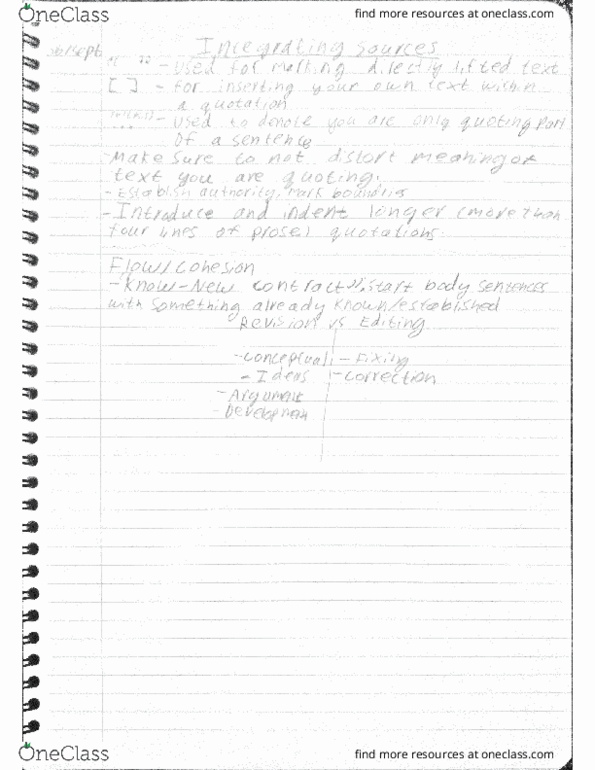 OneClass
find more resources at oneclass.com
Integrating Sources
" " - Used for marking directly lifted text
[ ] - for inserting your own text within
a quotation
... - Used to denote you are only quoting part
of a sentence
- Make sure to not distort meaning of
text you are quoting.
- Establish authority, mark boundries
- Introduce and indent longer (more than
four lines of prose) quotations.
Flow/Cohesion
- Know-New contract", start body sentences
with something already known/established
Revision vs Editing
- Conceptual - Fixing
- Ideas - Correction
- Argument
- Development
OneClass
find more resources at oneclass.com